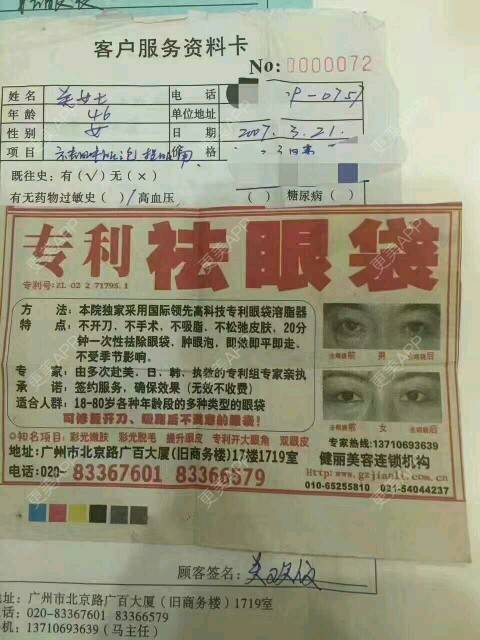 客户服务资料卡
No: 0000072
姓名 关女士 电话
年龄 46 单位地址
性别 女 日期 2007.3.21.
项目
既往史：有（√）无（×）
有无药物过敏史（ ）/高血压（ ）糖尿病（ ）
专利祛眼袋
专利号：ZL 02 2 71795.1
方法：本院独家采用国际领先高科技专利眼袋溶脂器
特点：不开刀、不手术、不吸脂、不松弛皮肤，20分
钟一次性祛除眼袋、肿眼泡，即做即平即走，
不受季节影响。
专家：由多次赴美、日、韩、执教的专利组专家亲执
承诺：签约服务，确保效果（无效不收费）
适合人群：18-80岁各种年龄段的多种类型的眼袋
可修复开刀、吸脂后不满意的眼袋！
前 男 后
前 女 后
◎知名项目：彩光嫩肤 彩光脱毛 提升眼皮 专利开大眼角 双眼皮
地址：广州市北京路广百大厦（旧商务楼）17楼1719室
电话：020- 83367601 83366579
专家热线：13710693639
健丽美容连锁机构
Http：www.gzjianli.com.cn
010-65255810 021-54044237
顾客签名：
地址：广州市北京路广百大厦（旧商务楼）1719室
电话：020-83367601 83366579
机：13710693639（马主任）
更美APP